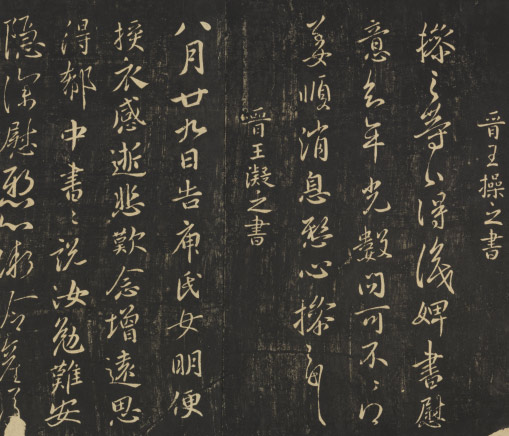 晉王操之書
操之等以得識婢書慰
意知年光數問可不ミ
姜順消息懸心操之耳
晉王凝之書
八月廿九日告庾氏女明便
授衣感逝悲歎念增遠思
得郗中書ミ說汝勉難安
隱深慰懸心漸冷產